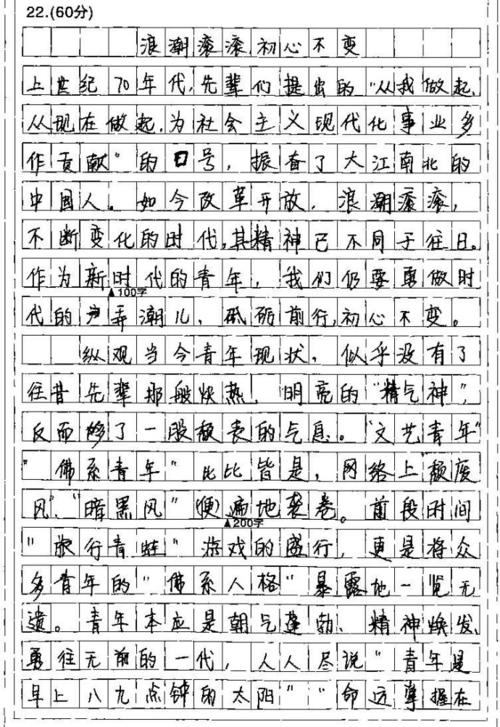 22.(60分)
浪潮滚滚,初心不变
上世纪70年代,先辈们提出的“从我做起,
从现在做起,为社会主义现代化事业多
作贡献”的口号,振奋了大江南北的
中国人。如今改革开放,浪潮滚滚,
不断变化的时代,其精神已不同于往日。
作为新时代的青年,我们仍要勇做时
▲100字
代的弄潮儿,砥砺前行,初心不变。
纵观当今青年现状,似乎没有了
往昔先辈那般炽热、明亮的“精气神”,
反而够了一股颓丧的气息。“文艺青年”
“佛系青年”比比皆是,网络上“颓废
风”、“暗黑风”便遍地袭卷。前段时间
▲200字
“旅行青蛙”游戏的盛行,更是将众
多青年的“佛系人格”暴露地一览无
遗。青年本应是朝气蓬勃、精神焕发、
勇往无前的一代,人人尽说“青年是
早上八九点钟的太阳”“命运掌握在